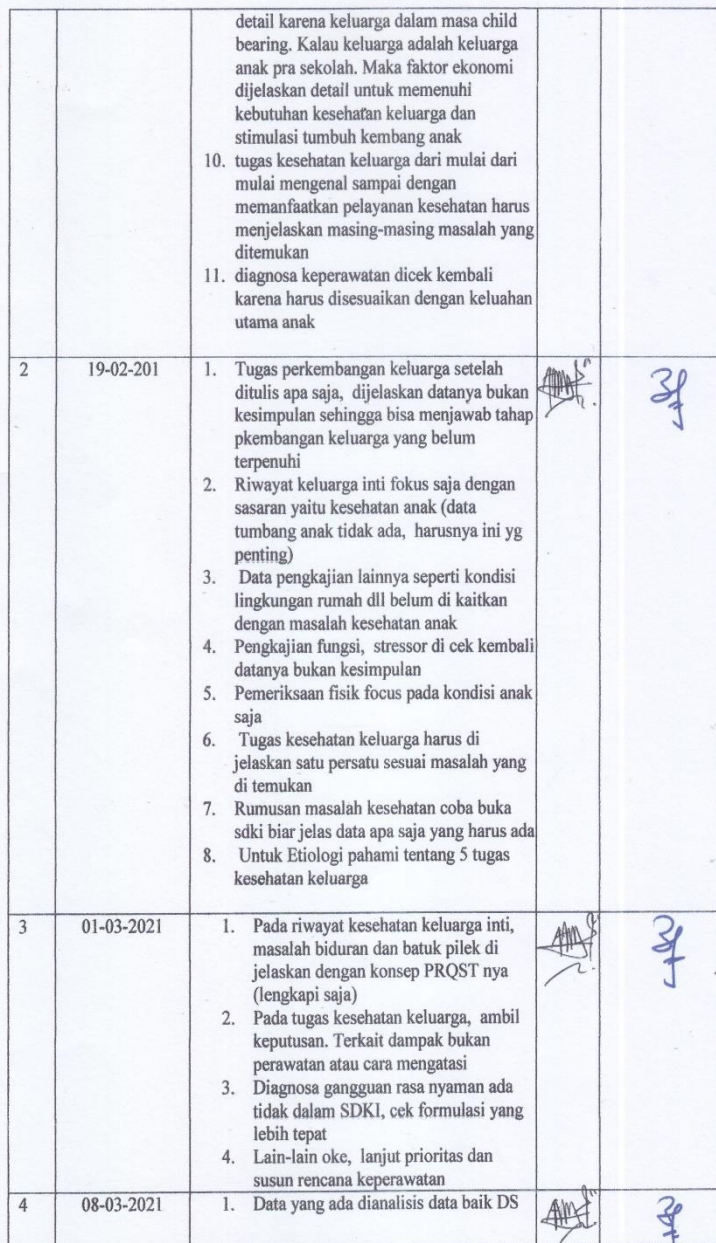 detail karena keluarga dalam masa child
bearing. Kalau keluarga adalah keluarga
anak pra sekolah. Maka faktor ekonomi
dijelaskan detail untuk memenuhi
kebutuhan kesehatan keluarga dan
stimulasi tumbuh kembang anak
10. tugas kesehatan keluarga dari mulai dari
mulai mengenal sampai dengan
memanfaatkan pelayanan kesehatan harus
menjelaskan masing-masing masalah yang
ditemukan
11. diagnosa keperawatan dicek kembali
karena harus disesuaikan dengan keluahan
utama anak
2 19-02-201 1. Tugas perkembangan keluarga setelah
ditulis apa saja, dijelaskan datanya bukan
kesimpulan sehingga bisa menjawab tahap
pkembangan keluarga yang belum
terpenuhi
2. Riwayat keluarga inti fokus saja dengan
sasaran yaitu kesehatan anak (data
tumbang anak tidak ada, harusnya ini yg
penting)
3. Data pengkajian lainnya seperti kondisi
lingkungan rumah dll belum di kaitkan
dengan masalah kesehatan anak
4. Pengkajian fungsi, stressor di cek kembali
datanya bukan kesimpulan
5. Pemeriksaan fisik focus pada kondisi anak
saja
6. Tugas kesehatan keluarga harus di
jelaskan satu persatu sesuai masalah yang
di temukan
7. Rumusan masalah kesehatan coba buka
sdki biar jelas data apa saja yang harus ada
8. Untuk Etiologi pahami tentang 5 tugas
kesehatan keluarga
3 01-03-2021 1. Pada riwayat kesehatan keluarga inti,
masalah biduran dan batuk pilek di
jelaskan dengan konsep PRQST nya
(lengkapi saja)
2. Pada tugas kesehatan keluarga, ambil
keputusan. Terkait dampak bukan
perawatan atau cara mengatasi
3. Diagnosa gangguan rasa nyaman ada
tidak dalam SDKI, cek formulasi yang
lebih tepat
4. Lain-lain oke, lanjut prioritas dan
susun rencana keperawatan
4 08-03-2021 1. Data yang ada dianalisis data baik DS